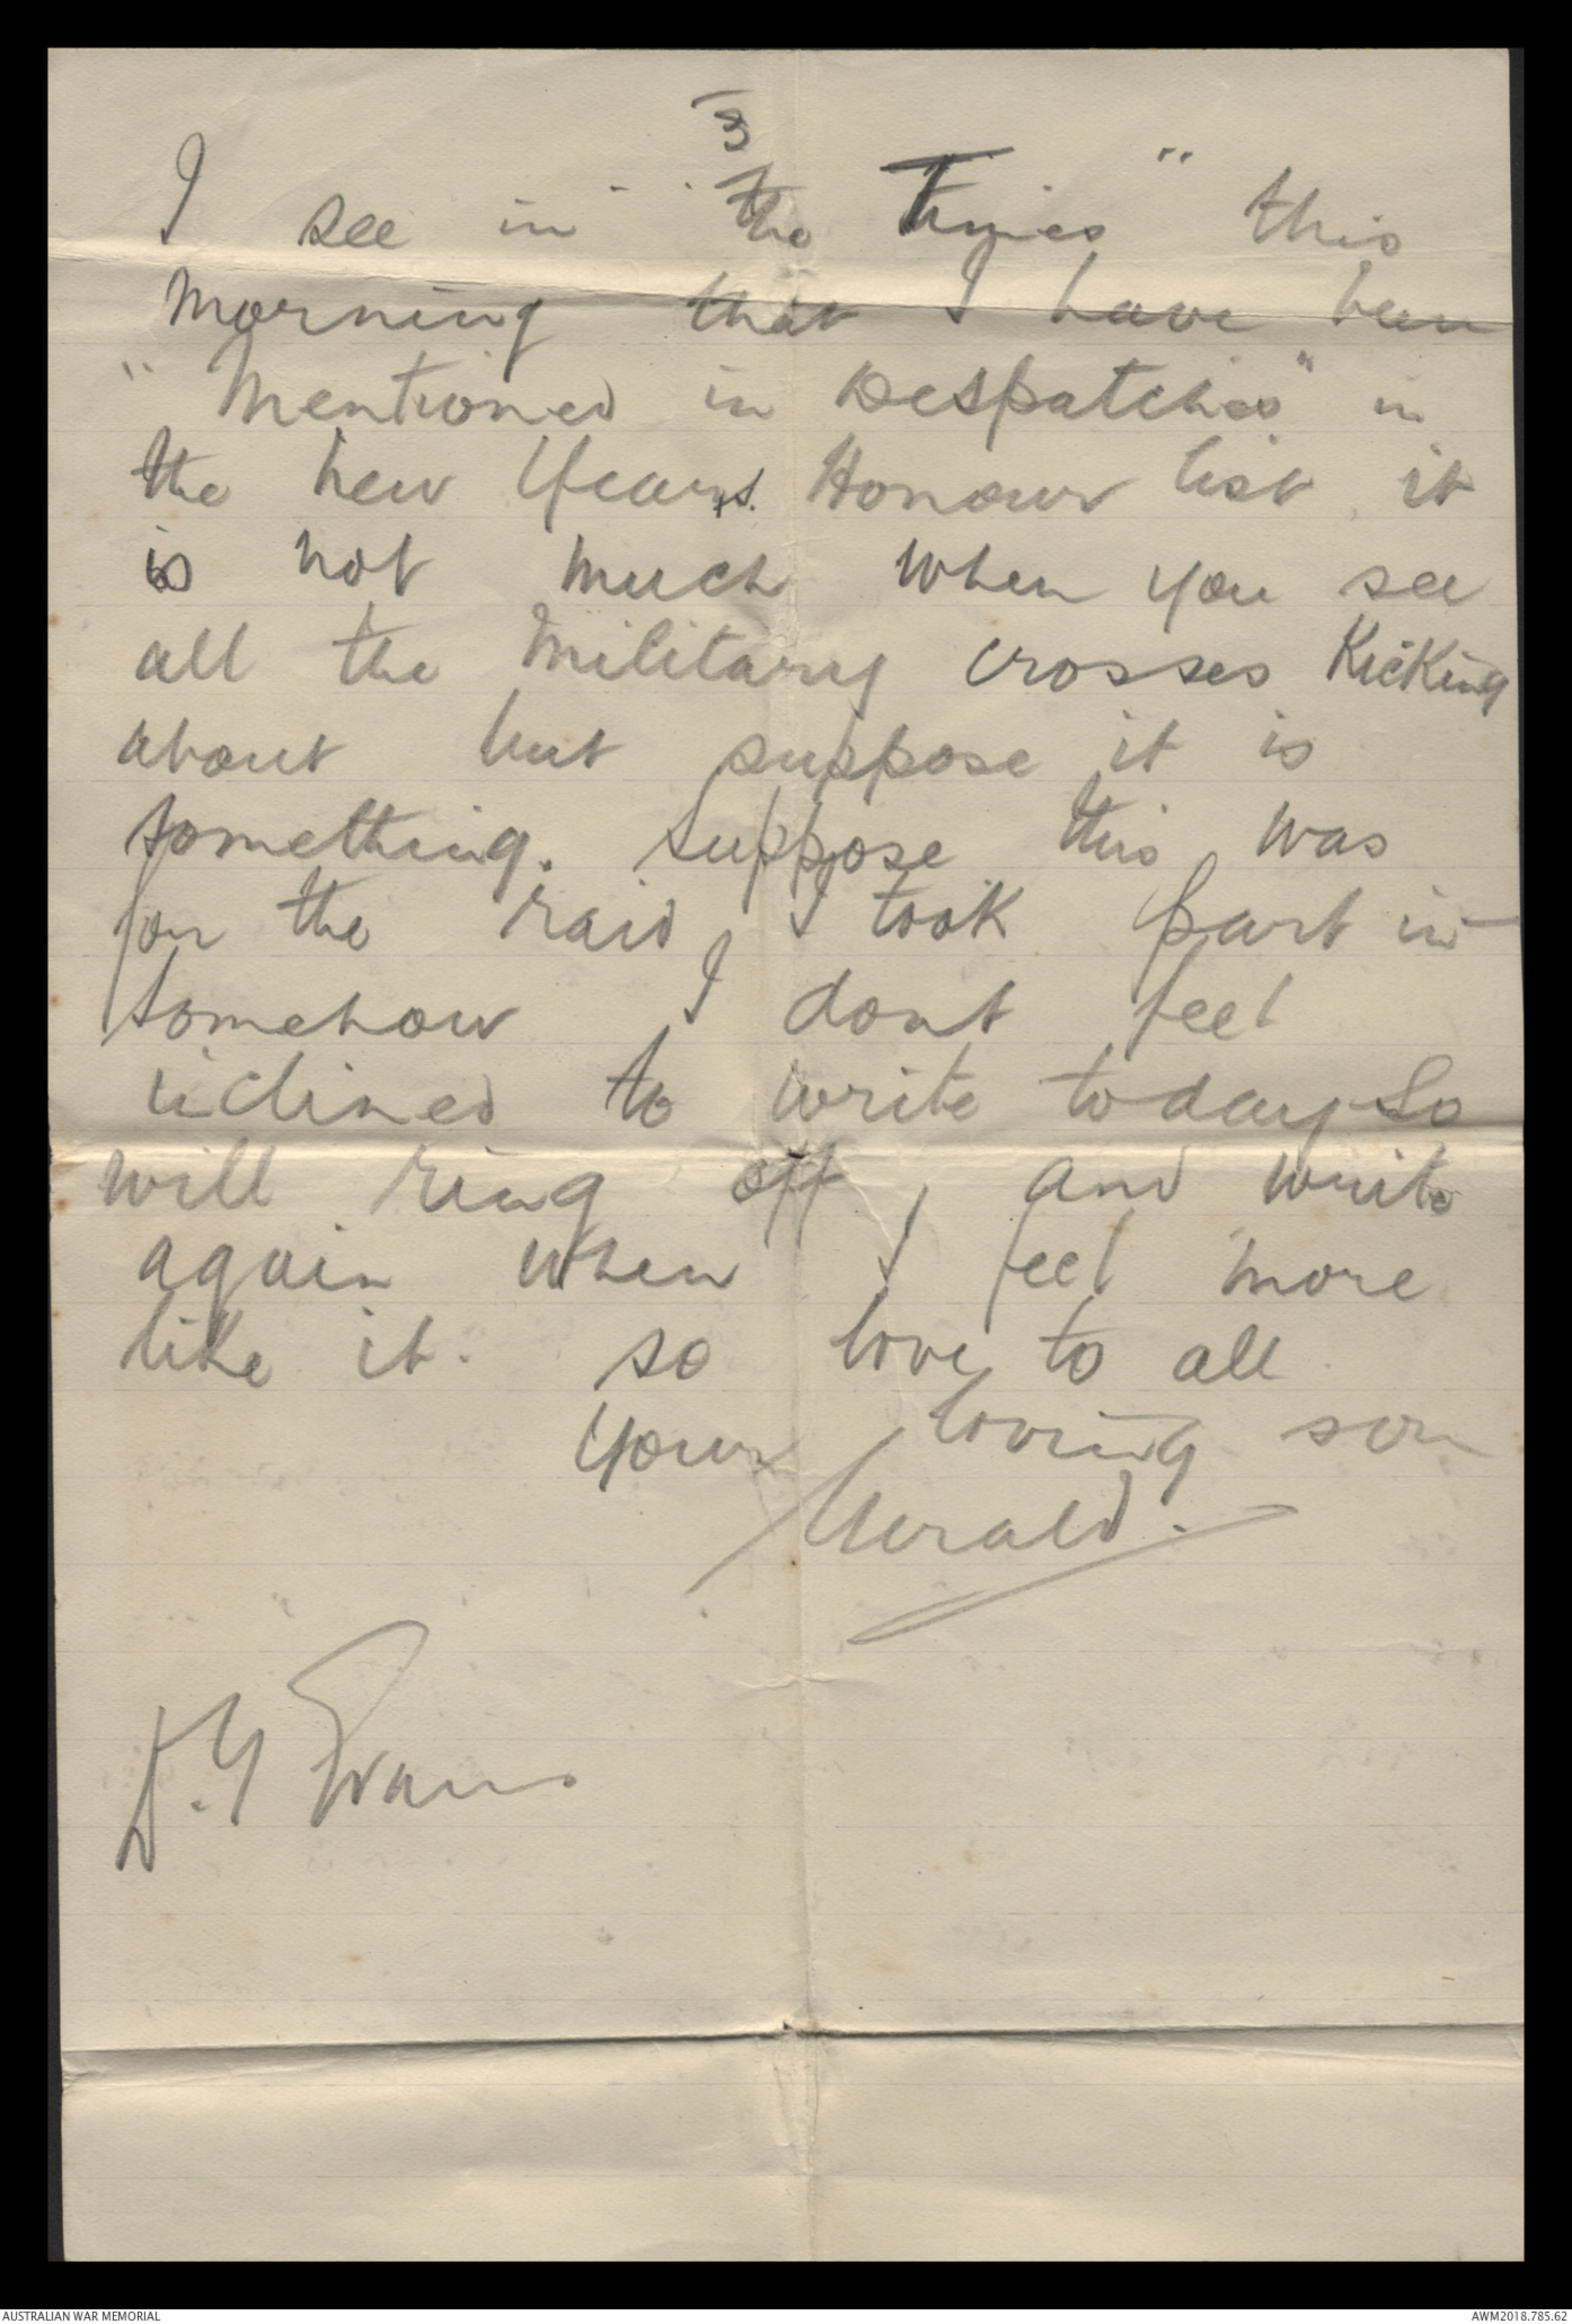 3
I see in "The Times" this
morning that I have been
"Mentioned in Despatches" in
the New Years Honour list it
is not much when you see
all the Military crosses Kicking
about but suppose it is
something. Suppose this was
for the raid I took part in
Somehow I dont feel
iclined to write today So
will ring off, and write
again when I feel more
like it. so love to all
Your loving son
Gerald.
D.G Evans
AUSTRALIAN WAR MEMORIAL
AWM2018.785.62